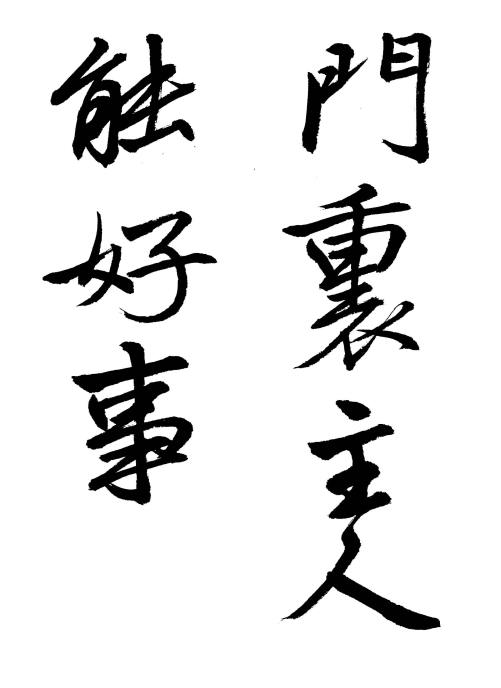 門裏主人
能好事